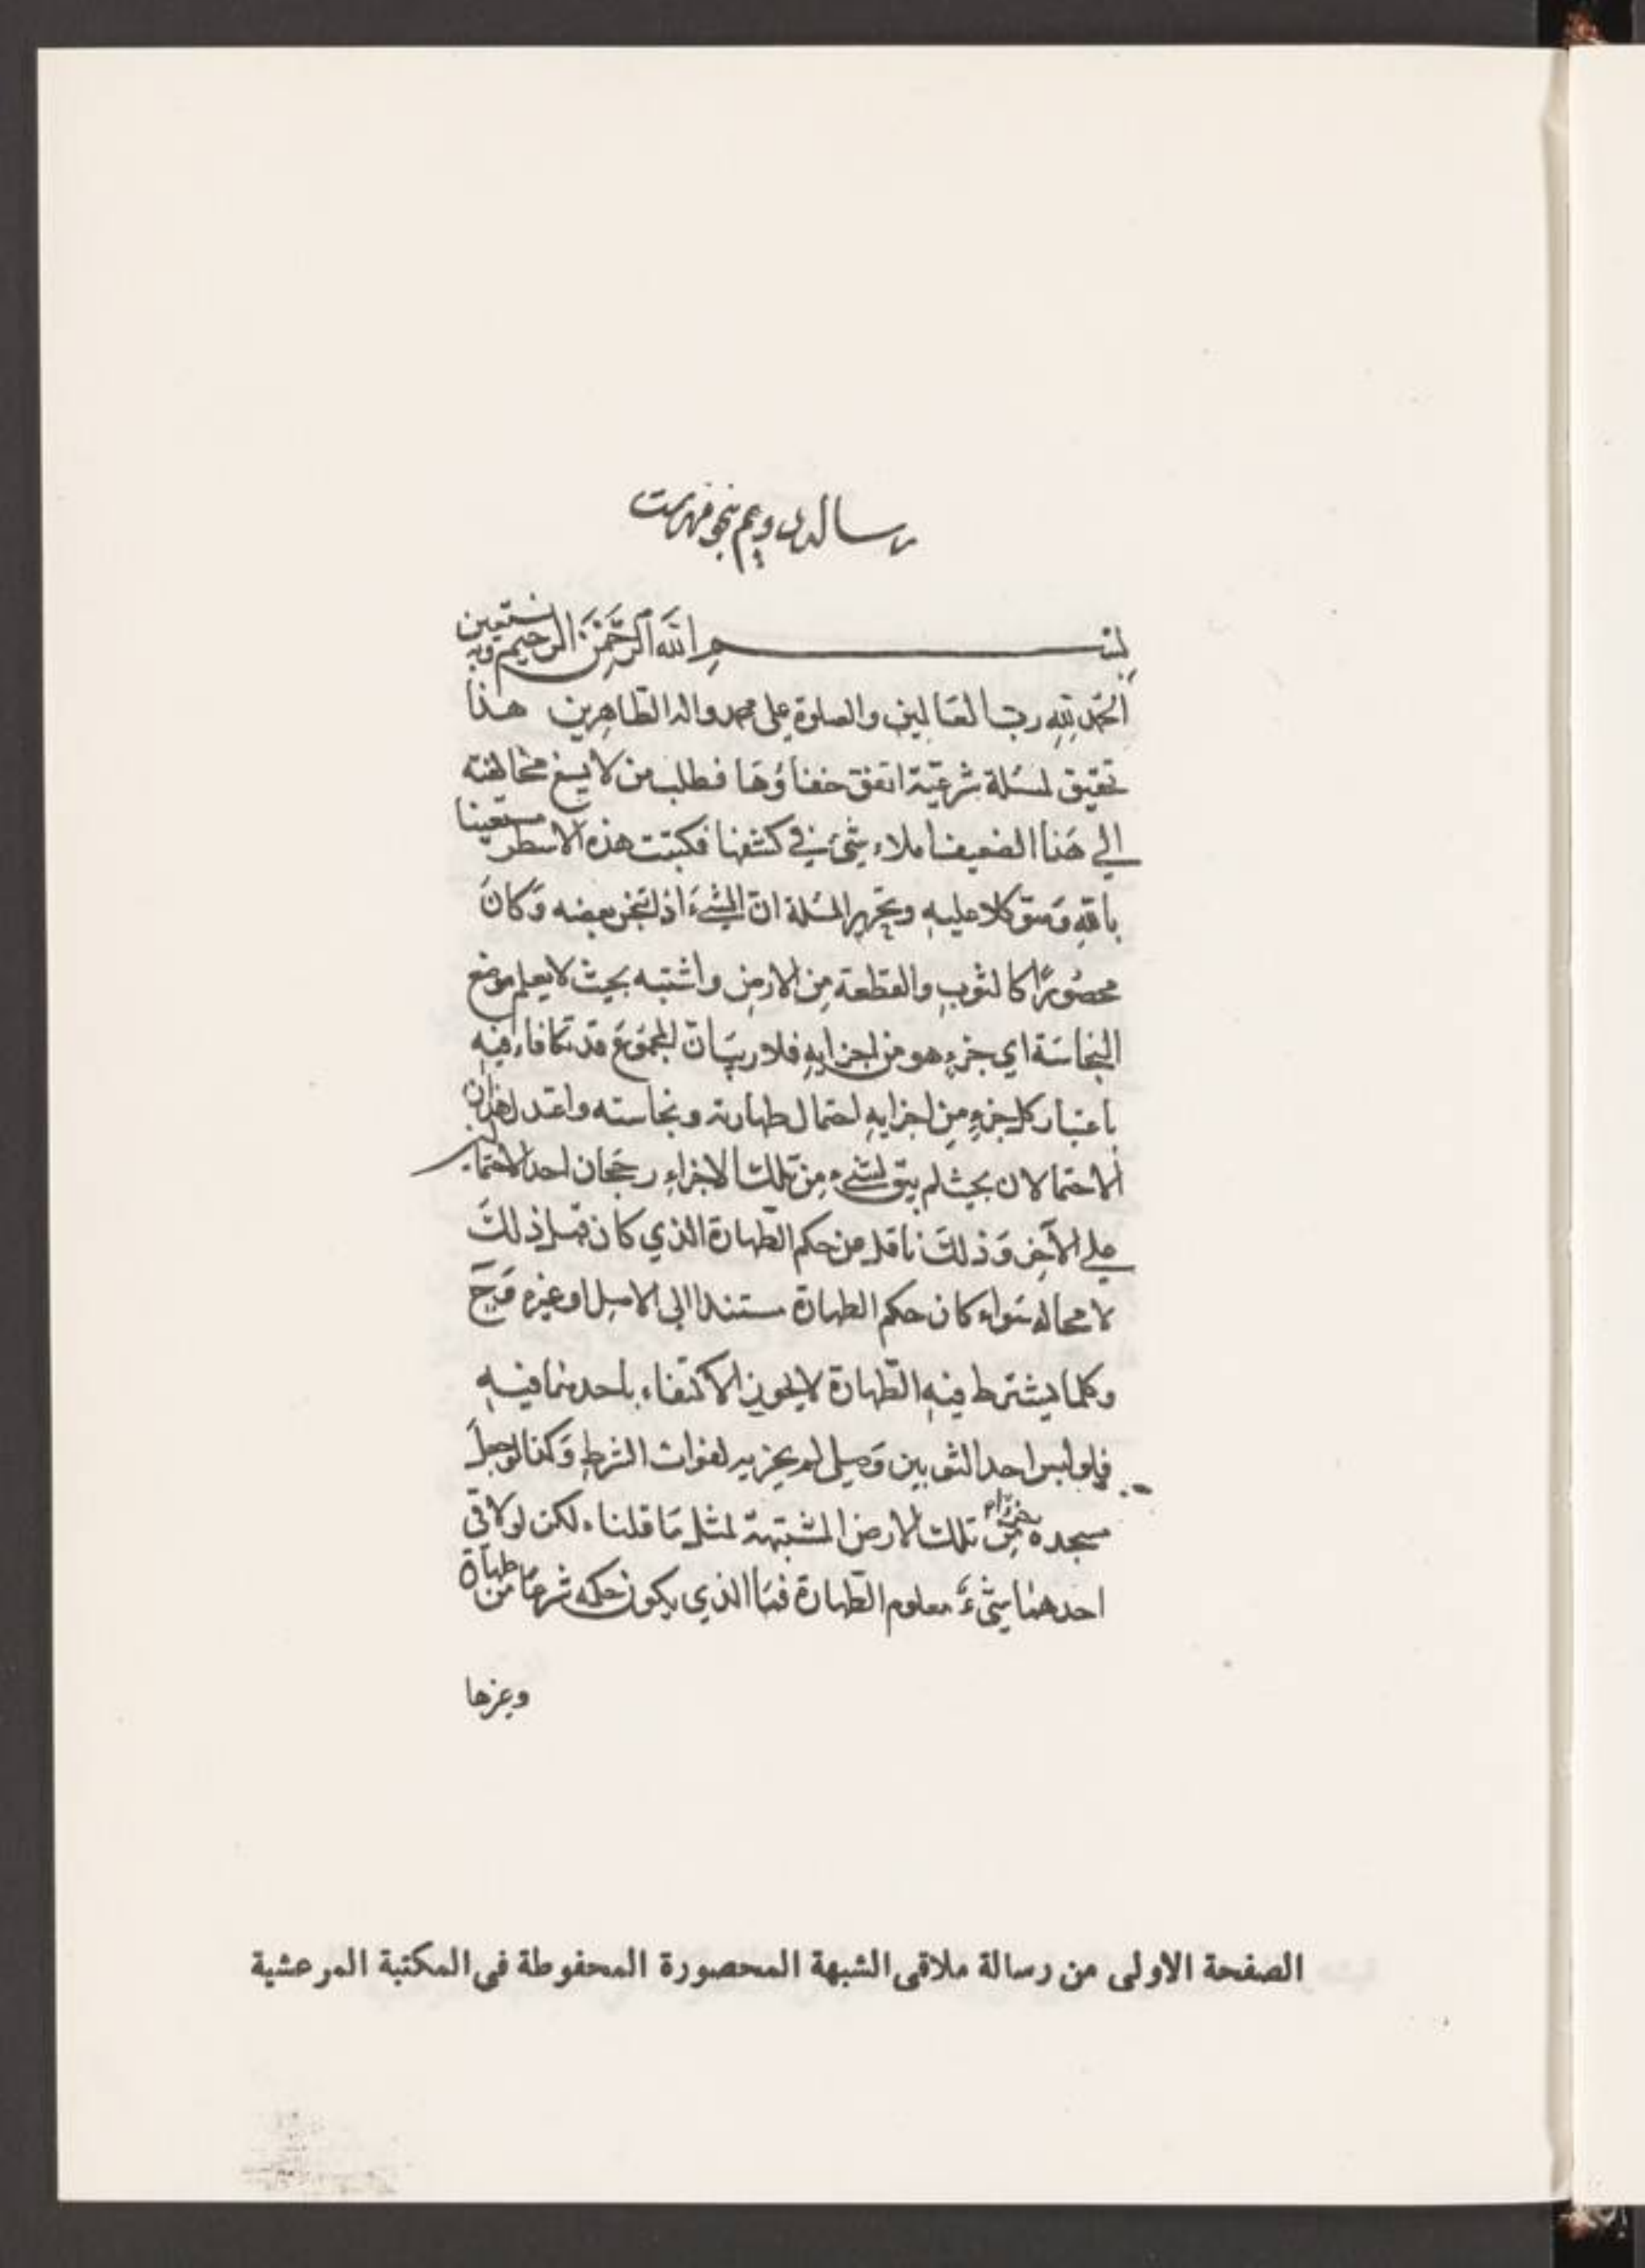 رساله دويم بنجو فهرست
بســـم الله الرحمن الرحيم وبه نستعين
الحمد لله رب العالمين والصلوة على محمد واله الطاهرين هذا
تحقيق لمسئلة شرعيّة اتفق خفاؤها فطلب من لا يسع مخالفته
الي هذا الضعيف املاء شئ في كشفها فكتبت هذه الاسطر مستعينا
بالله ومتوكلا عليه وتحرير المسئلة انّ الشيء اذا نجس بعضه وكان
محصورًا كالثوب والقطعة من الارض واشتبه بحيث لا يعلم موضع
النجاسة اي جزء هو من اجزايه فلا ريب انّ المجموع قد تكافاء فيه
باعتبار كل جزء من اجزايه احتمال طهارته ونجاسته واعتدل هذان
الاحتمالان بحيث لم يبق لشيء من تلك الاجزاء رجحان احد الاحتمالين
علي الآخر وذلك ناقل من حكم الطهارة الذي كان قبل ذلك
لا محاله سواء كان حكم الطهارة مستندا الى الاصل او غيره وح
وكلما يشترط فيه الطهارة لا يجوز الاكتفاء باحدهما فيه
فلو لبس احد الثوبين وصلى لم يجزيه لفوات الشرط وكذا لو جعل
مسجده جزءا من تلك الارض المشتبهة لمثل ما قلناه لكن لو لاقى
احدهما شيء معلوم الطهارة فما الذي يكون حكمه شرعا من طهارة
وغيرها
الصفحة الاولى من رسالة ملاقى الشبهة المحصورة المحفوطة فى المكتبة المرعشية